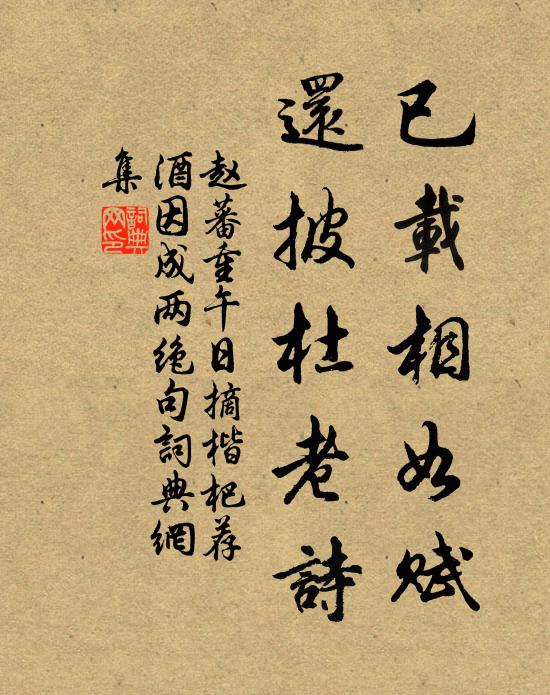 已載相如賦
還披杜老詩
赵蕃重午日摘楷杷荐
酒因成两绝句詞典網
集
詞典
网印